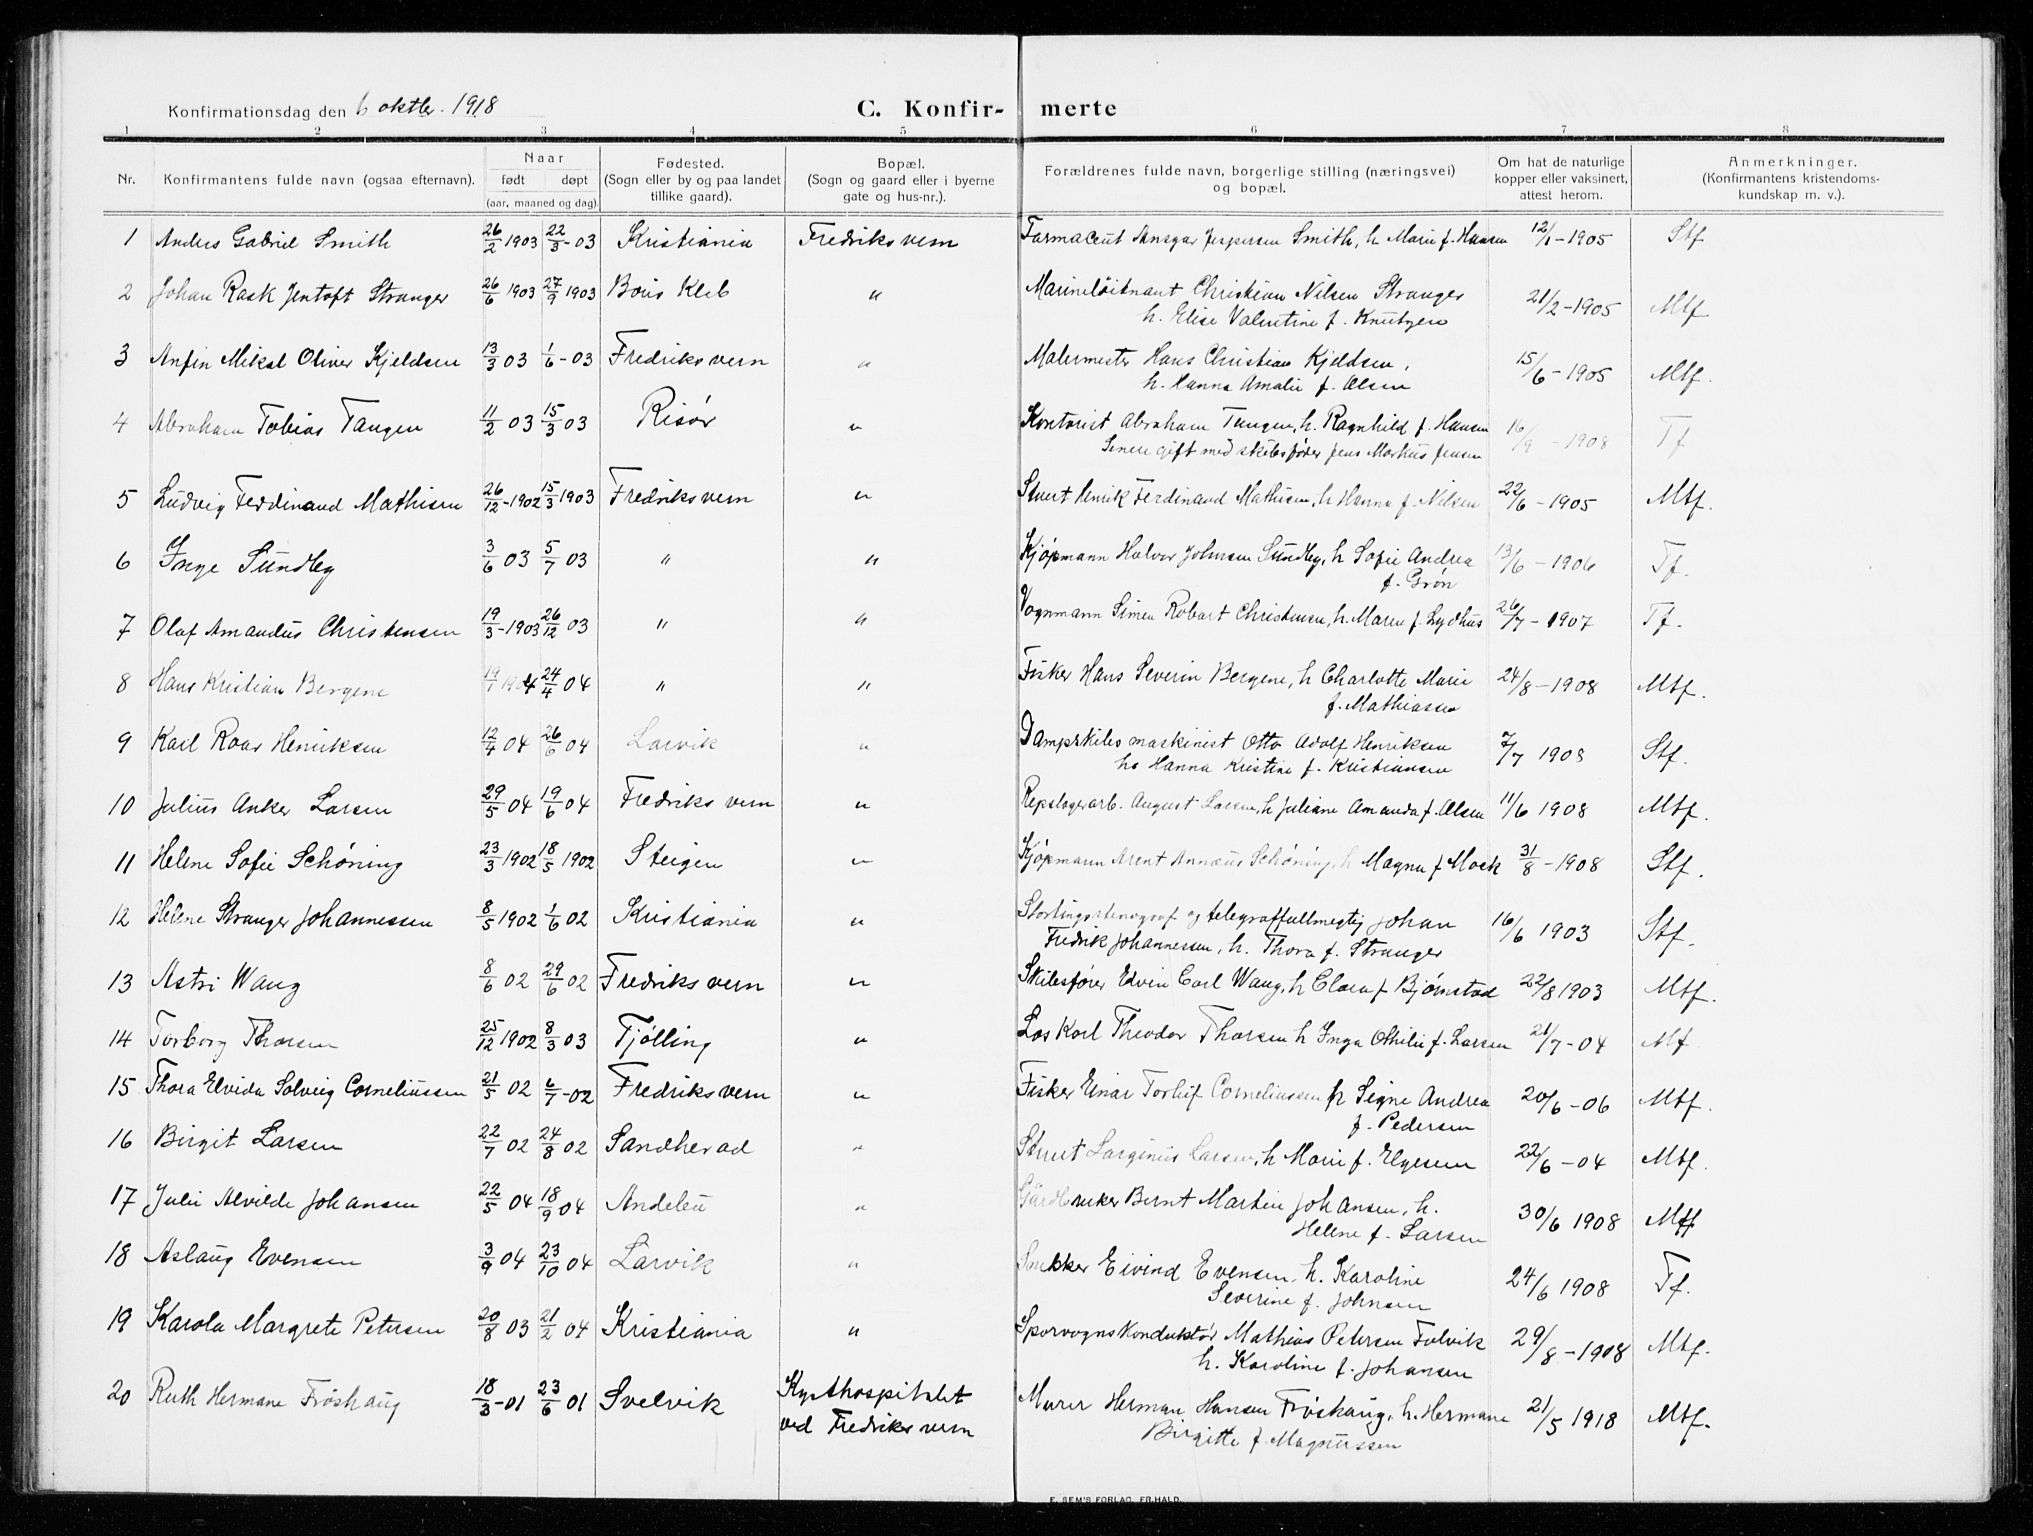 Konfirmationsdag den 6 oktbr. 1918
C. Konfir- merte
1 2 3 4 5 6 7 8
Nr. Konfirmantens fulde navn (ogsaa efternavn). Naar født døpt (aar, maaned og dag). Fødested. (Sogn eller by og paa landet tillike gaard). Bopæl. (Sogn og gaard eller i byerne gate og hus-nr.). Forældrenes fulde navn, borgerlige stilling (næringsvei) og bopæl. Om hat de naturlige kopper eller vaksinert, attest herom. Anmerkninger. (Konfirmantens kristendoms- kundskap m. v.).
1 Anders Gabriel Smith 26/2 1903 22/3-03 Kristiania Fredriksvern Farmaceut Ansgar Jespersen Smith, h Marie f. Hansen 12/1-1905 Stf
2 Johan Rask Jentoft Stranger 26/6 1903 27/9 1903 " Marineløitnant Christian Nilsen Stranger 21/2-1905 Mtf
h. Elise Valentine f. Knutzen
3 Anfin Mikal Oliver Kjeldsen 13/3 03 1/6-03 Fredriksvern " Malermester Hans Christian Kjeldsen, 15/6-1905 Mtf.
h. Hanna Amalie f. Olsen
4 Abraham Tobias Tangen 11/2 03 15/3 03 Risør " Kontorist Abraham Tangen, h. Ragnhild f. Hansen 16/9-1908 Tf
Senere gift med skibsfører Jens Markus Jensen
5 Ludvig Ferdinand Mathisen 26/12-1902 15/3 1903 Fredriksvern " Henrik Ferdinand Mathisen, h Hanna f. Nilsen 22/6-1905 Mtf.
6 Inge Sundby 3/6 03 5/7 03 " " Kjøpmann Halvor Johnsen Sundby, h Sofie Andrea 13/6-1906 Tf.
f. Grøn
7 Olaf Amandus Christensen 19/3-1903 26/12 03 " " Vognmann Simen Robert Christensen, h. Maren f. Lydhus 26/7-1907 Tf.
8 Hans Kristian Bergene 19/1 1904 24/4 04 " " Fisker Hans Severin Bergene, h Charlotte Marie 24/8-1908 Mtf.
f. Mathiassen
9 Karl Roar Henriksen 12/4 04 26/6 04 Larvik " Dampskibsmaskinist Otto Adolf Henriksen 7/7 1908 Stf.
h. Hanna Kristine f. Kristiansen
10 Julius Anker Larsen 29/5 04 19/6 04 Fredriksvern " Repslagerarb. August Larsen, h Juliane Amanda f. Olsen 11/6 1908 Mtf.
11 Helene Sofie Schøning 23/3 1902 18/5 1902 Steigen " Kjøpmann Arent Annæus Schøning, h Magna f Mack 31/8-1908 Stf.
12 Helene Stranger Johannessen 8/5 1902 1/6 02 Kristiania " Stortingsstenograf og telegraffullmegtig Johan 16/6 1903 Stf.
Fredrik Johannessen, h. Thora f. Stranger
13 Astri Wang 8/6 02 29/6 02 Fredriksvern " Skibsfører Edvin Carl Wang, h Clara f Bjørnstad 22/8 1903 Mtf.
14 Torborg Thorsen 25/12 1902 8/3 03 Tjølling " Los Karl Theodor Thorsen h Inga Othilie f. Larsen 21/7-04 Mf
15 Thora Elvida Solveig Corneliussen 21/5 02 6/7-02 Fredriksvern " Fisker Einar Torleif Corneliussen h Signe Andrea 20/6-06 Mtf.
f. Pedersen
16 Birgit Larsen 22/7 02 24/8 02 Sandherad " Larsen, h Marie f. Elgesem 22/6-04 Mtf.
17 Julie Alvilde Johansen 22/5 04 18/9 04 Andebu " Gårdbruker Bernt Martin Johansen, h. 30/6 1908 Mtf
Helene f. Larsen
18 Aslaug Evensen 3/9 04 23/10 04 Larvik " Snekker Eivind Evensen, h. Karoline 24/6 1908 Tf.
Severine f. Johnsen
19 Karola Margrete Petersen 20/8 03 21/2 04 Kristiania " Sporvognskonduktør Mathias Petersen 29/8-1908 Mtf.
h. Karoline f. Johansen
20 Ruth Hermane Frøshaug 18/3-01 23/6 01 Svelvik Kysthospitalet Murer Herman Hansen Frøshaug, h. Hermane 21/5 1918 Mtf.
ved Fredriksvern Birgitte f. Magnussen
F. SEM'S FORLAG, FR.HALD.